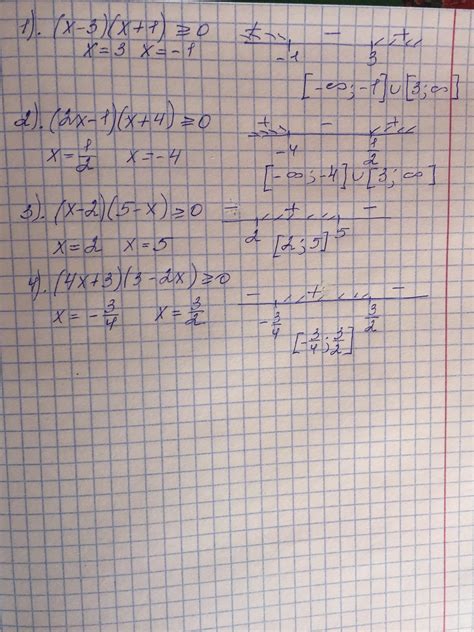 1). (x-3)(x+1) ≥ 0
x=3 x=-1
+ - +
-1 3
[-∞;-1]∪[3;∞]
2). (2x-1)(x+4) ≥ 0
x=1/2 x=-4
+ - +
-4 1/2
[-∞;-4]∪[3;∞]
3). (x-2)(5-x) ≥ 0
x=2 x=5
- + -
2 5
[2;5]
4). (4x+3)(3-2x) ≥ 0
x=-3/4 x=3/2
- + -
-3/4 3/2
[-3/4;3/2]